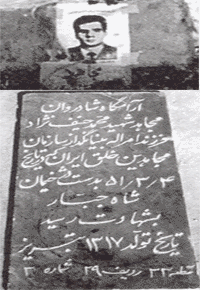 آرامگاه شادروان
مجاهد شهید محمد حنیف نژاد
فرزند امراله بنیانگذار سازمان
مجاهدین خلق ایران که در تاریخ
۵۱/۳/۴ بدست دژخیمان
شاه جبار
بشهادت رسید
تاریخ تولد ۱۳۱۷ تبریز
قطعه ۳۳ ردیف ۲۹ شماره ۳